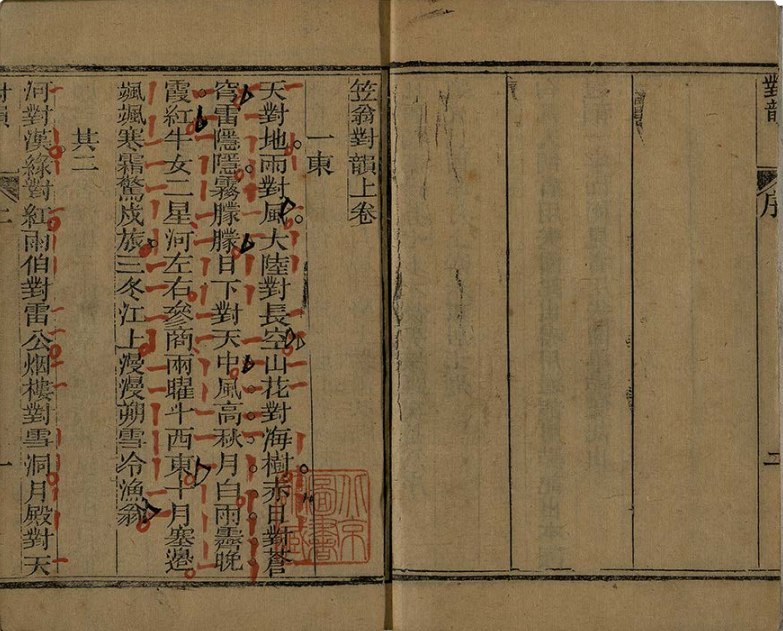 對韻 序 二
笠翁對韻上卷
一東
天對地雨對風大陸對長空山花對海樹赤日對蒼
穹雷隱隱霧朦朦日下對天中風高秋月白雨霽晚
霞紅牛女二星河左右參商兩曜斗西東十月塞邊
颯颯寒霜驚戍旅三冬江上漫漫朔雪冷漁翁
其二
河對漢綠對紅雨伯對雷公烟樓對雪洞月殿對天
對韻 上 一
北京圖書館藏